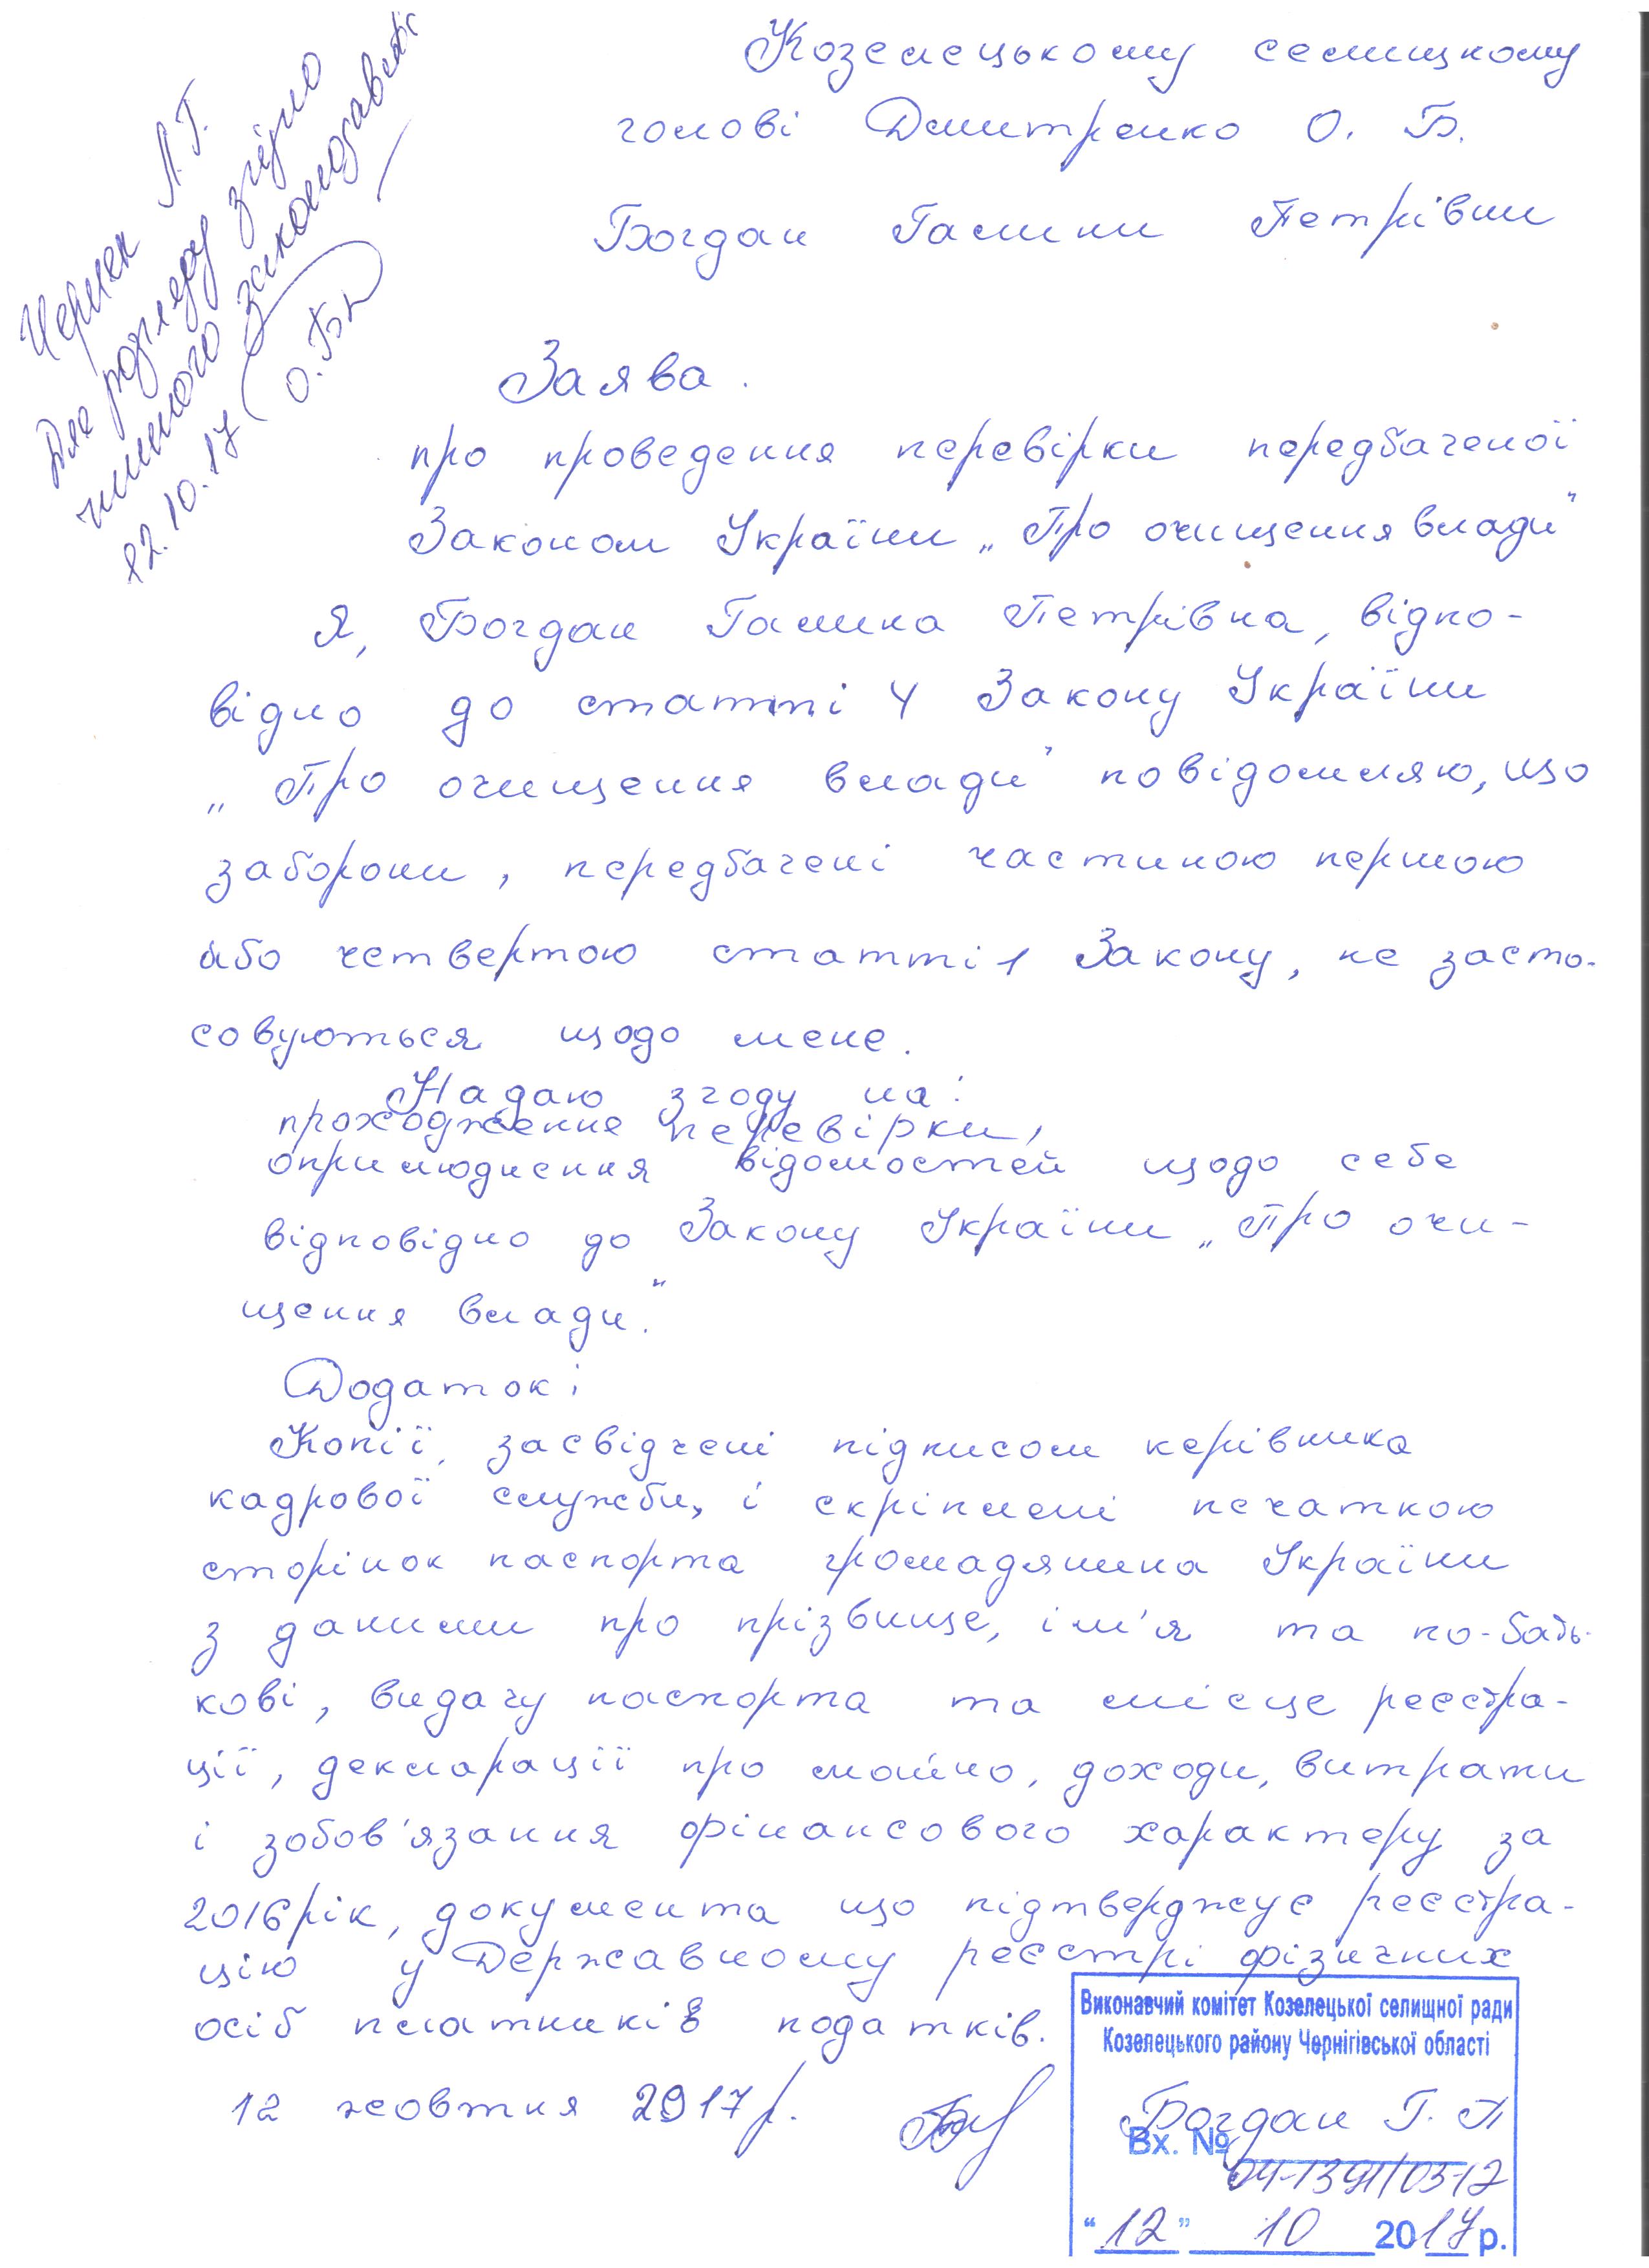 Козелецькому селищному
голові Дмитренко О. Б.
Богдан Галини Петрівни
Л.Г.
Для розгляду згідно
чинного законодавства
12.10.17
Заява.
про проведення перевірки передбаченої
Законом України „Про очищення влади"
Я, Богдан Галина Петрівна, відпо-
відно до статті 4 Закону України
„Про очищення влади" повідомляю, що
заборони, передбачені частиною першою
або четвертою статті 1 Закону, не засто-
совуються щодо мене.
Надаю згоду на:
проходження перевірки,
оприлюднення відомостей щодо себе
відповідно до Закону України „Про очи-
щення влади."
Додаток:
Копії, засвідчені підписом керівника
кадрової служби, і скріплені печаткою
сторінок паспорта громадянина України
з даними про прізвище, ім'я та по-бать-
кові, видачу паспорта та місце реєстра-
ції, декларації про майно, доходи, витрати
і зобов'язання фінансового характеру за
2016рік, документа що підтверджує реєстра-
цію у Державному реєстрі фізичних
осіб платників податків.
12 жовтня 2017р.
Виконавчий комітет Козелецької селищної ради
Козелецького району Чернігівської області
Богдан Г. П
Вх. № 04-1391/03-17
"12" 10 2017 р.